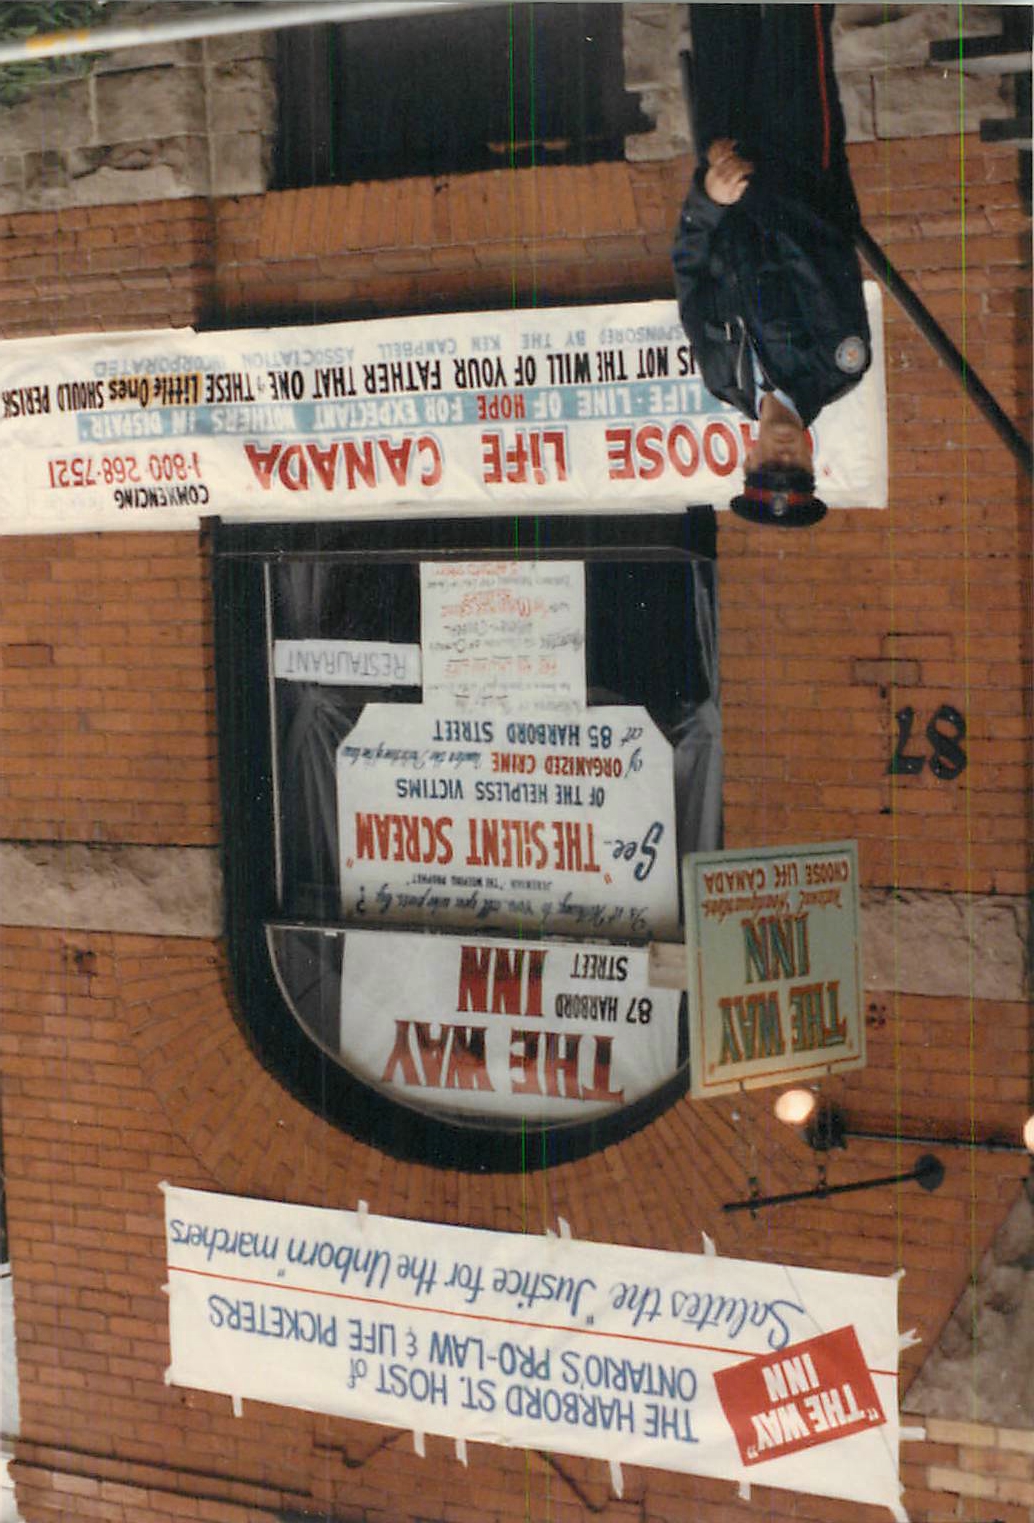 "THE WAY" INN
THE HARBORD ST. HOST of
ONTARIO'S PRO-LAW & LIFE PICKETERS
Salutes the "Justice for the Unborn" marchers
"THE WAY"
INN
National Headquarters
CHOOSE LIFE CANADA
THE WAY
87 HARBORD
STREET INN
Is it Nothing to You, all you who pass by?
JEREMIAH "THE WEEPING PROPHET"
See "THE SILENT SCREAM"
OF THE HELPLESS VICTIMS
of ORGANIZED CRIME under the Protection of the law
at 85 HARBORD STREET
RESTAURANT
87
"CHOOSE LIFE CANADA"
COMMENCING
1-800-268-7521
LIFE-LINE OF HOPE FOR EXPECTANT MOTHERS IN DESPAIR"
IS NOT THE WILL OF YOUR FATHER THAT ONE of THESE Little Ones SHOULD PERISH
SPONSORED BY THE KEN CAMPBELL ASSOCIATION INCORPORATED